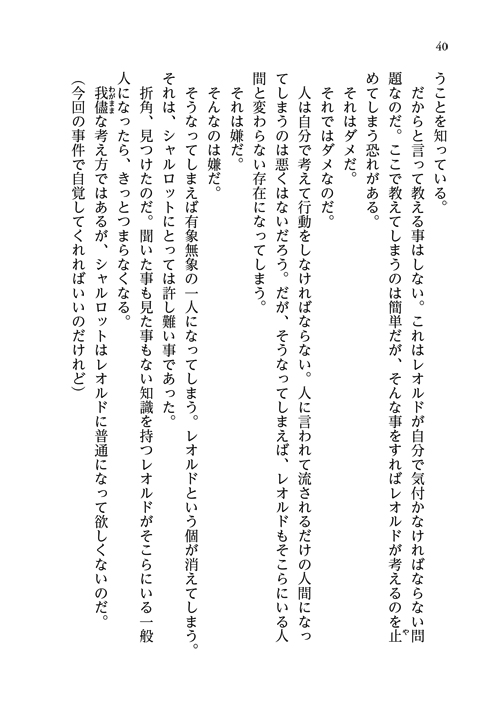 40
うことを知っている。
だからと言って教える事はしない。これはレオルドが自分で気付かなければならない問
題なのだ。ここで教えてしまうのは簡単だが、そんな事をすればレオルドが考えるのを止や
めてしまう恐れがある。
それはダメだ。
それではダメなのだ。
人は自分で考えて行動をしなければならない。人に言われて流されるだけの人間になっ
てしまうのは悪くはないだろう。だが、そうなってしまえば、レオルドもそこらにいる人
間と変わらない存在になってしまう。
それは嫌だ。
そんなのは嫌だ。
そうなってしまえば有象無象の一人になってしまう。レオルドという個が消えてしまう。
それは、シャルロットにとっては許し難い事であった。
折角、見つけたのだ。聞いた事も見た事もない知識を持つレオルドがそこらにいる一般
人になったら、きっとつまらなくなる。
我儘わがままな考え方ではあるが、シャルロットはレオルドに普通になって欲しくないのだ。
（今回の事件で自覚してくれればいいのだけれど）